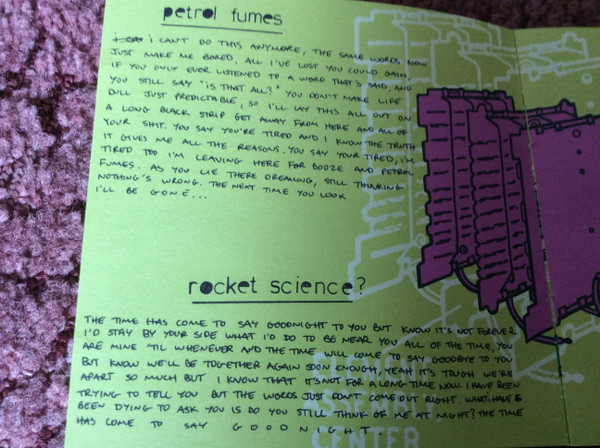 petrol fumes
I CAN'T DO THIS ANYMORE, THE SAME WORDS NOW
JUST MAKE ME BORED, ALL I'VE LOST YOU COULD GAIN,
IF YOU ONLY EVER LISTENED TO A WORD THAT'S SAID, AND
YOU STILL SAY "IS THAT ALL?" YOU DON'T MAKE LIFE
DULL JUST PREDICTABLE, SO I'LL LAY THIS ALL OUT ON
A LONG BLACK STRIP GET AWAY FROM HERE AND ALL OF
YOUR SHIT. YOU SAY YOU'RE TIRED AND I KNOW THE TRUTH
IT GIVES ME ALL THE REASONS. YOU SAY YOUR TIRED, I'M
TIRED TOO I'M LEAVING HERE FOR BOOZE AND PETROL
FUMES. AS YOU LIE THERE DREAMING, STILL THINKING
NOTHING'S WRONG. THE NEXT TIME YOU LOOK
I'LL BE GONE...
rocket science?
THE TIME HAS COME TO SAY GOODNIGHT TO YOU BUT KNOW IT'S NOT FOREVER
I'D STAY BY YOUR SIDE WHAT I'D DO TO BE NEAR YOU ALL OF THE TIME, YOU
ARE MINE 'TIL WHENEVER AND THE TIME WILL COME TO SAY GOODBYE TO YOU
BUT KNOW WE'LL BE TOGETHER AGAIN SOON ENOUGH, YEAH IT'S TOUGH WE'RE
APART SO MUCH BUT I KNOW THAT IT'S NOT FOR A LONG TIME NOW. I HAVE BEEN
TRYING TO TELL YOU BUT THE WORDS JUST DON'T COME OUT RIGHT. WHAT I HAVE
BEEN DYING TO ASK YOU IS DO YOU STILL THINK OF ME AT NIGHT? THE TIME
HAS COME TO SAY GOODNIGHT
CENTER